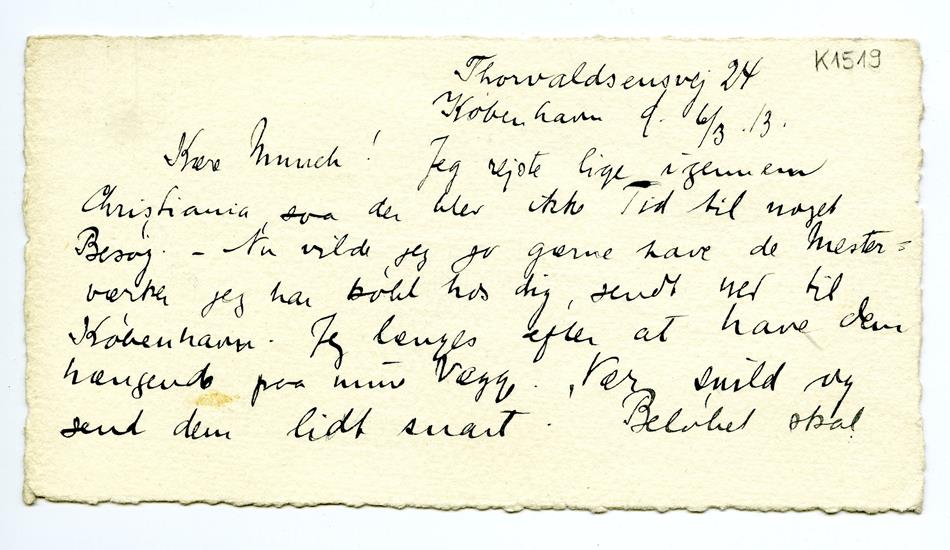 K1519
Thorvaldsensvej 24
København 9. 6/3 .13.
Kære Munch! Jeg rejste lige igennem
Christiania saa der blev ikke Tid til noget
Besøg. – Nu vilde jeg jo gærne have de Mester=
værker jeg har købt hos dig, sendt ned til
København. Jeg længes efter at have dem
hængende paa mine Vægge. Vær snild og
send dem lidt snart. Beløbet skal